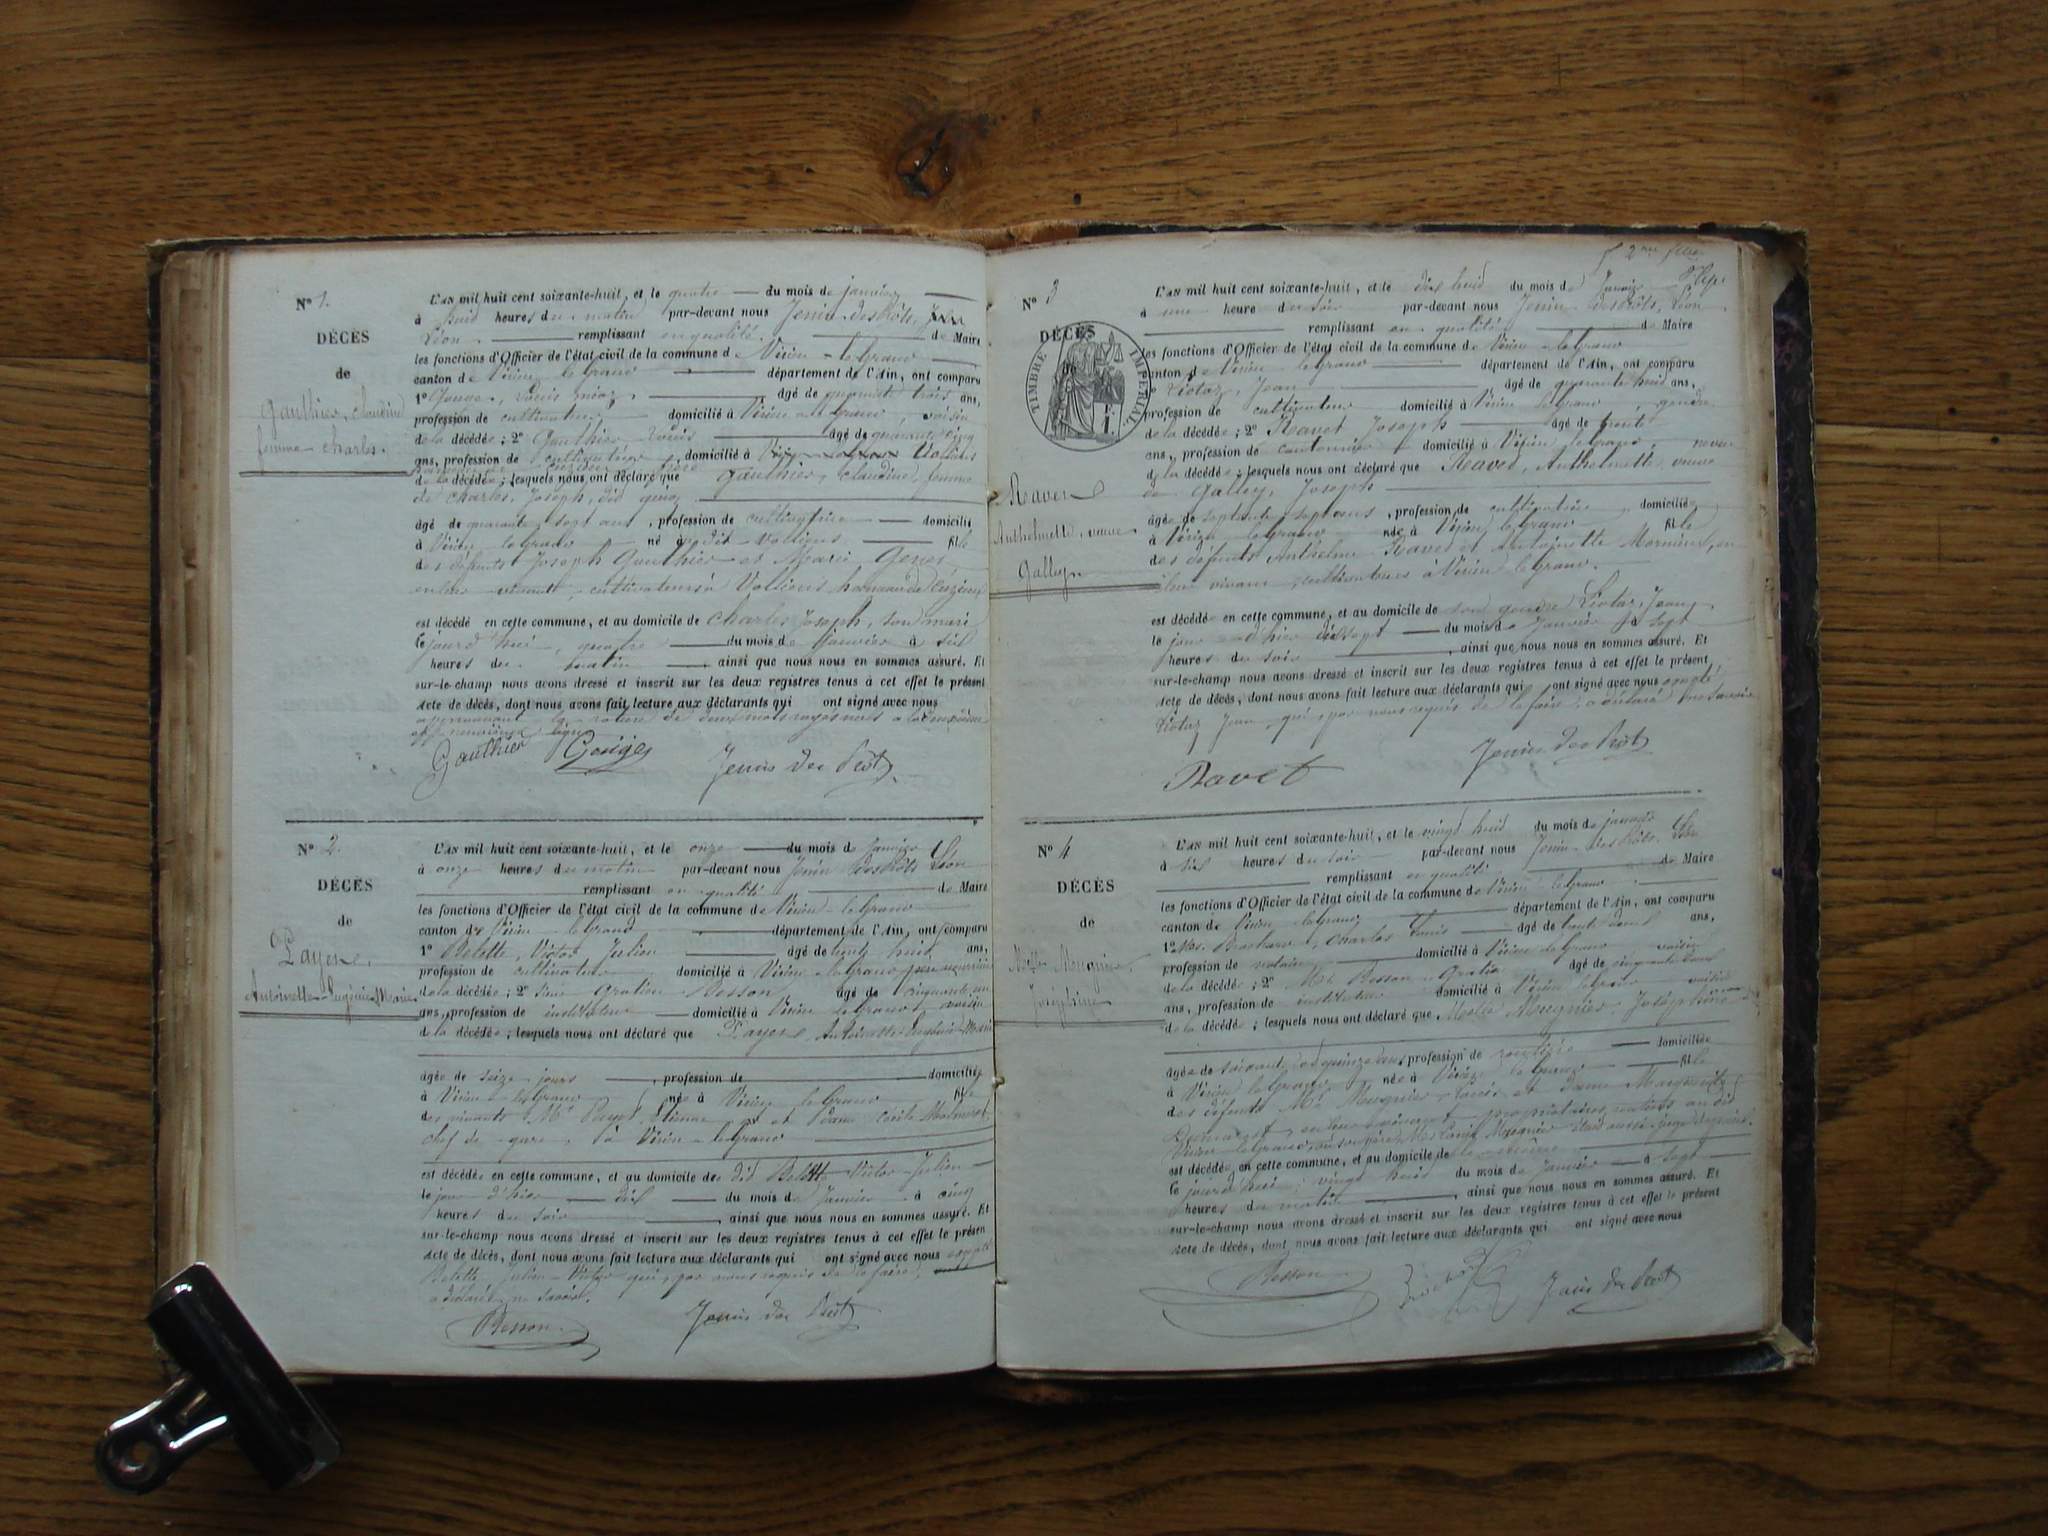 N° 1.
DÉCÈS
de
Gauthier, claudine
femme charles.
L'AN mil huit cent soixante-huit, et le quatre du mois de janvier
à huit heures du matin par-devant nous Jenin-desProts,
Léon remplissant en qualité de Maire
les fonctions d'Officier de l'état civil de la commune de Virieu-le Grand
canton de Virieu le Grand département de l'Ain, ont comparu
1° Gouge, Louis âgé de quarante trois ans,
profession de cultivateur domicilié à Virieu le Grand voisin
de la décédée; 2° Gauthier Louis âgé de quarante cinq
ans, profession de cultivateur, domicilié à
de la décédée; lesquels nous ont déclaré que Gauthier, claudine, femme
de charles, Joseph,
âgé de quarante sept ans, profession de cultivatrice domicilié
à Virieu le Grand né à dit Vollien fille
des défunts Joseph Gauthier et Marie
en leur vivant, cultivateurs à
est décédé en cette commune, et au domicile de charles Joseph, son mari
le jourd'hui, quatre du mois de Janvier à six
heures du matin, ainsi que nous nous en sommes assuré. Et
sur-le-champ nous avons dressé et inscrit sur les deux registres tenus à cet effet le présent
acte de décès, dont nous avons fait lecture aux déclarants qui ont signé avec nous
approuvant la rature de deux mots rayés nuls à la deuxième
Gauthier Gouges Jenin des Prost
N° 2.
DÉCÈS
de
Payen,
Antoinette-Eugénie-Marie
L'AN mil huit cent soixante-huit, et le onze du mois de Janvier
à onze heures du matin par-devant nous Jenin DesProts Léon
remplissant en qualité de Maire
les fonctions d'Officier de l'état civil de la commune de Virieu-le Grand
canton de Virieu-le Grand département de l'Ain, ont comparu
1° Belette, Victor Julien âgé de trente huit ans,
profession de cultivateur domicilié à Virieu-le Grand père nourricier
de la décédée; 2° Gratien Besson âgé de cinquante un
ans, profession de instituteur domicilié à Virieu le Grand, voisin
de la décédée; lesquels nous ont déclaré que Payen, Antoinette-Eugénie-Marie
âgée de seize jours, profession de domicilié
à Virieu-le Grand née à Virieu le Grand fille
des vivants Mr Etienne et Dame Cécile
chef de gare, à Virieu-le Grand
est décédée en cette commune, et au domicile de dit Belette Victor-Julien
le jour d'hier dix du mois de Janvier à cinq
heures du soir, ainsi que nous nous en sommes assuré. Et
sur-le-champ nous avons dressé et inscrit sur les deux registres tenus à cet effet le présen
acte de décès, dont nous avons fait lecture aux déclarants qui ont signé avec nous excepté
Belette Julien-Victor qui, par nous requis de le faire,
a déclaré ne savoir.
Besson Jenin des Prost
2me feuille
N° 3
DÉCÈS
TIMBRE IMPÉRIAL
Ravet
Anthelmette, veuve
Galley
L'AN mil huit cent soixante-huit, et le dix huit du mois de Janvier
à une heure du soir par-devant nous Jenin-desProts, Léon
remplissant en qualité de Maire
les fonctions d'Officier de l'état civil de la commune de Virieu-le Grand
canton de Virieu le Grand département de l'Ain, ont comparu
Liotaz, Jean âgé de quarante huit ans,
profession de cultivateur domicilié à Virieu le Grand, gendre
de la décédée; 2° Ravet Joseph âgé de trente
ans, profession de cantonnier domicilié à Virieu le Grand, neveu
de la décédée; lesquels nous ont déclaré que Ravet, Anthelmette veuve
de Galley, Joseph
âgée de septante sept ans, profession de cultivatrice domiciliée
à Virieu le Grand née à Virieu le Grand fille
des défunts Anthelme Ravet et Antoinette
leur vivant, cultivateurs à Virieu le Grand.
est décédée en cette commune, et au domicile de son gendre Liotaz, Jean,
le jour d'hier dix sept du mois de Janvier à sept
heures du soir, ainsi que nous nous en sommes assuré. Et
sur-le-champ nous avons dressé et inscrit sur les deux registres tenus à cet effet le présent
acte de décès, dont nous avons fait lecture aux déclarants qui ont signé avec nous excepté
Liotaz Jean, qui, par nous requis de le faire, a déclaré ne savoir
Ravet Jenin des Prost
N° 4
DÉCÈS
de
Melle Mugnier,
Joséphine
L'AN mil huit cent soixante-huit, et le vingt huit du mois de janvier
à six heures du soir par-devant nous Jenin-desProts. Léon
remplissant en qualité de Maire
les fonctions d'Officier de l'état civil de la commune de Virieu-le Grand
canton de Virieu le Grand département de l'Ain, ont comparu
1° Brochard, Charles Louis âgé de trente deux ans,
profession de notaire domicilié à Virieu le Grand voisin
de la décédée; 2° Mr Besson Gratien âgé de cinquante
ans, profession de instituteur domicilié à Virieu le Grand voisin
de la décédée; lesquels nous ont déclaré que Melle Mugnier Joséphine
âgée de soixante et quinze ans, profession de rentière domiciliée
à Virieu le Grand née à Virieu le Grand fille
des défunts Mr Mugnier Louis et Dame Marguerite
en leur vivant propriétaires
Virieu le Grand,
est décédée en cette commune, et au domicile de
le jourd'hui, vingt huit du mois de Janvier à sept
heures du matin, ainsi que nous nous en sommes assuré. Et
sur-le-champ nous avons dressé et inscrit sur les deux registres tenus à cet effet le présent
acte de décès, dont nous avons fait lecture aux déclarants qui ont signé avec nous
Besson Jenin des Prost